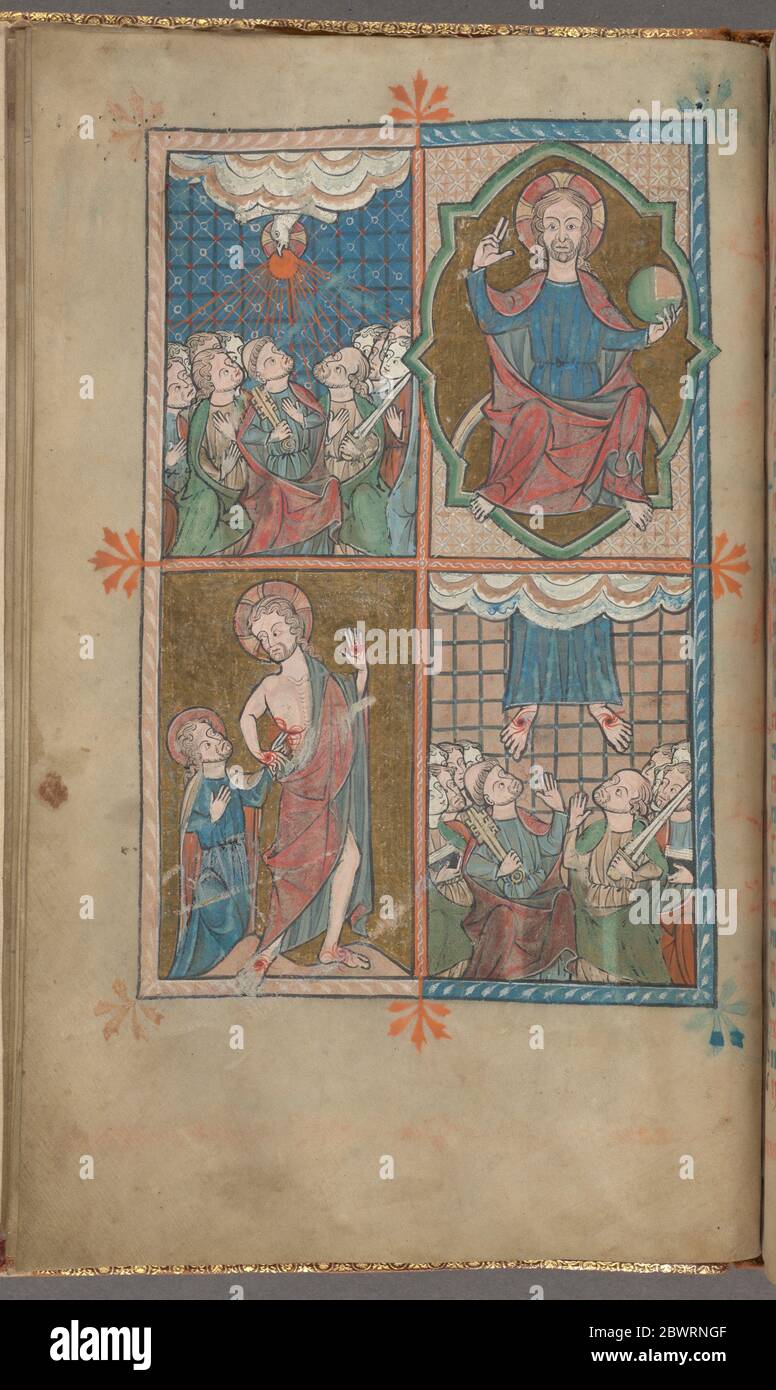 alamy
Image ID: 2BWRNGF
www.alamy.com